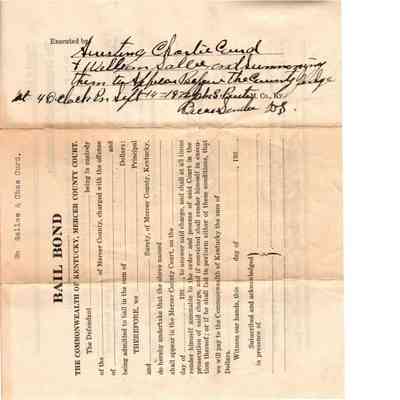 Executed by Arresting Charlie Curd
& William Sallee and summoning
them to Appear Before The County Judge
at 4 O clock Pm Sept 14 - 19 M. Co., KY.
D.S.
Wm Sallee & Chas Curd.
BAIL BOND
THE COMMONWEALTH OF KENTUCKY, MERCER COUNTY COURT.
The Defendant being in custody
of the of Mercer County, charged with the offense
of and
being admitted to bail in the sum of Dollars:
THEREFORE, we Principal
and Surety, of Mercer County, Kentucky,
do hereby undertake that the above named
shall appear in the Mercer County Court, on the
day of 191 , to answer said charge, and shall at all times
render himself amenable to the order and process of said Court in the
prosecution of said charge, and if convicted shall render himself in execu-
tion thereof; or if he shall fail to perform either of these conditions, that
we will pay to the Commonwealth of Kentucky the sum of
Dollars.
Witness our hands, this day of 191
Subscribed and acknowledged
in presence of